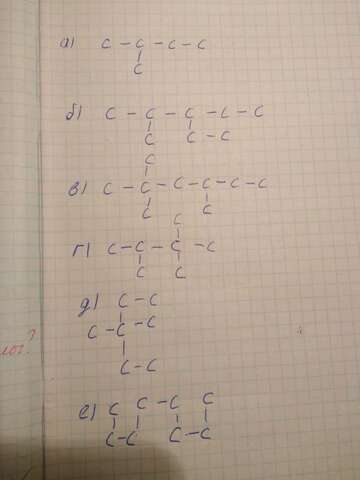 а) C - C - C - C
C
б) C - C - C - C - C
C C - C
C
в) C - C - C - C - C - C
C C
C
г) C - C - C - C
C C
д) C - C
C - C - C
C - C
е) C C - C C
C - C C - C